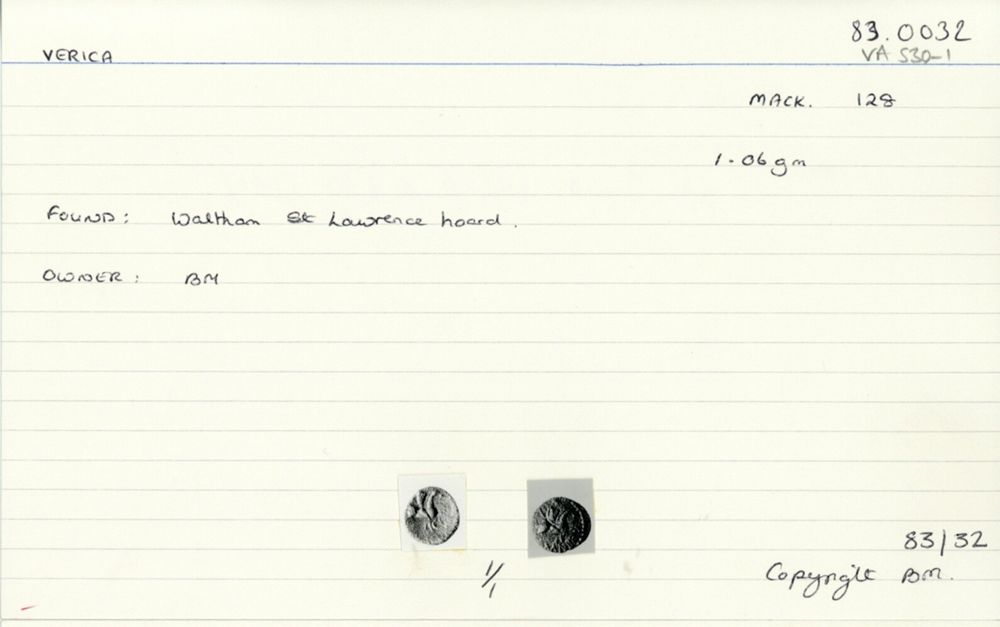 83.0032
VERICA
VA 530-1
MACK. 128
1.06gm
FOUND: Waltham St Lawrence hoard.
OWNER: BM
83/32
1/1
Copyright BM.